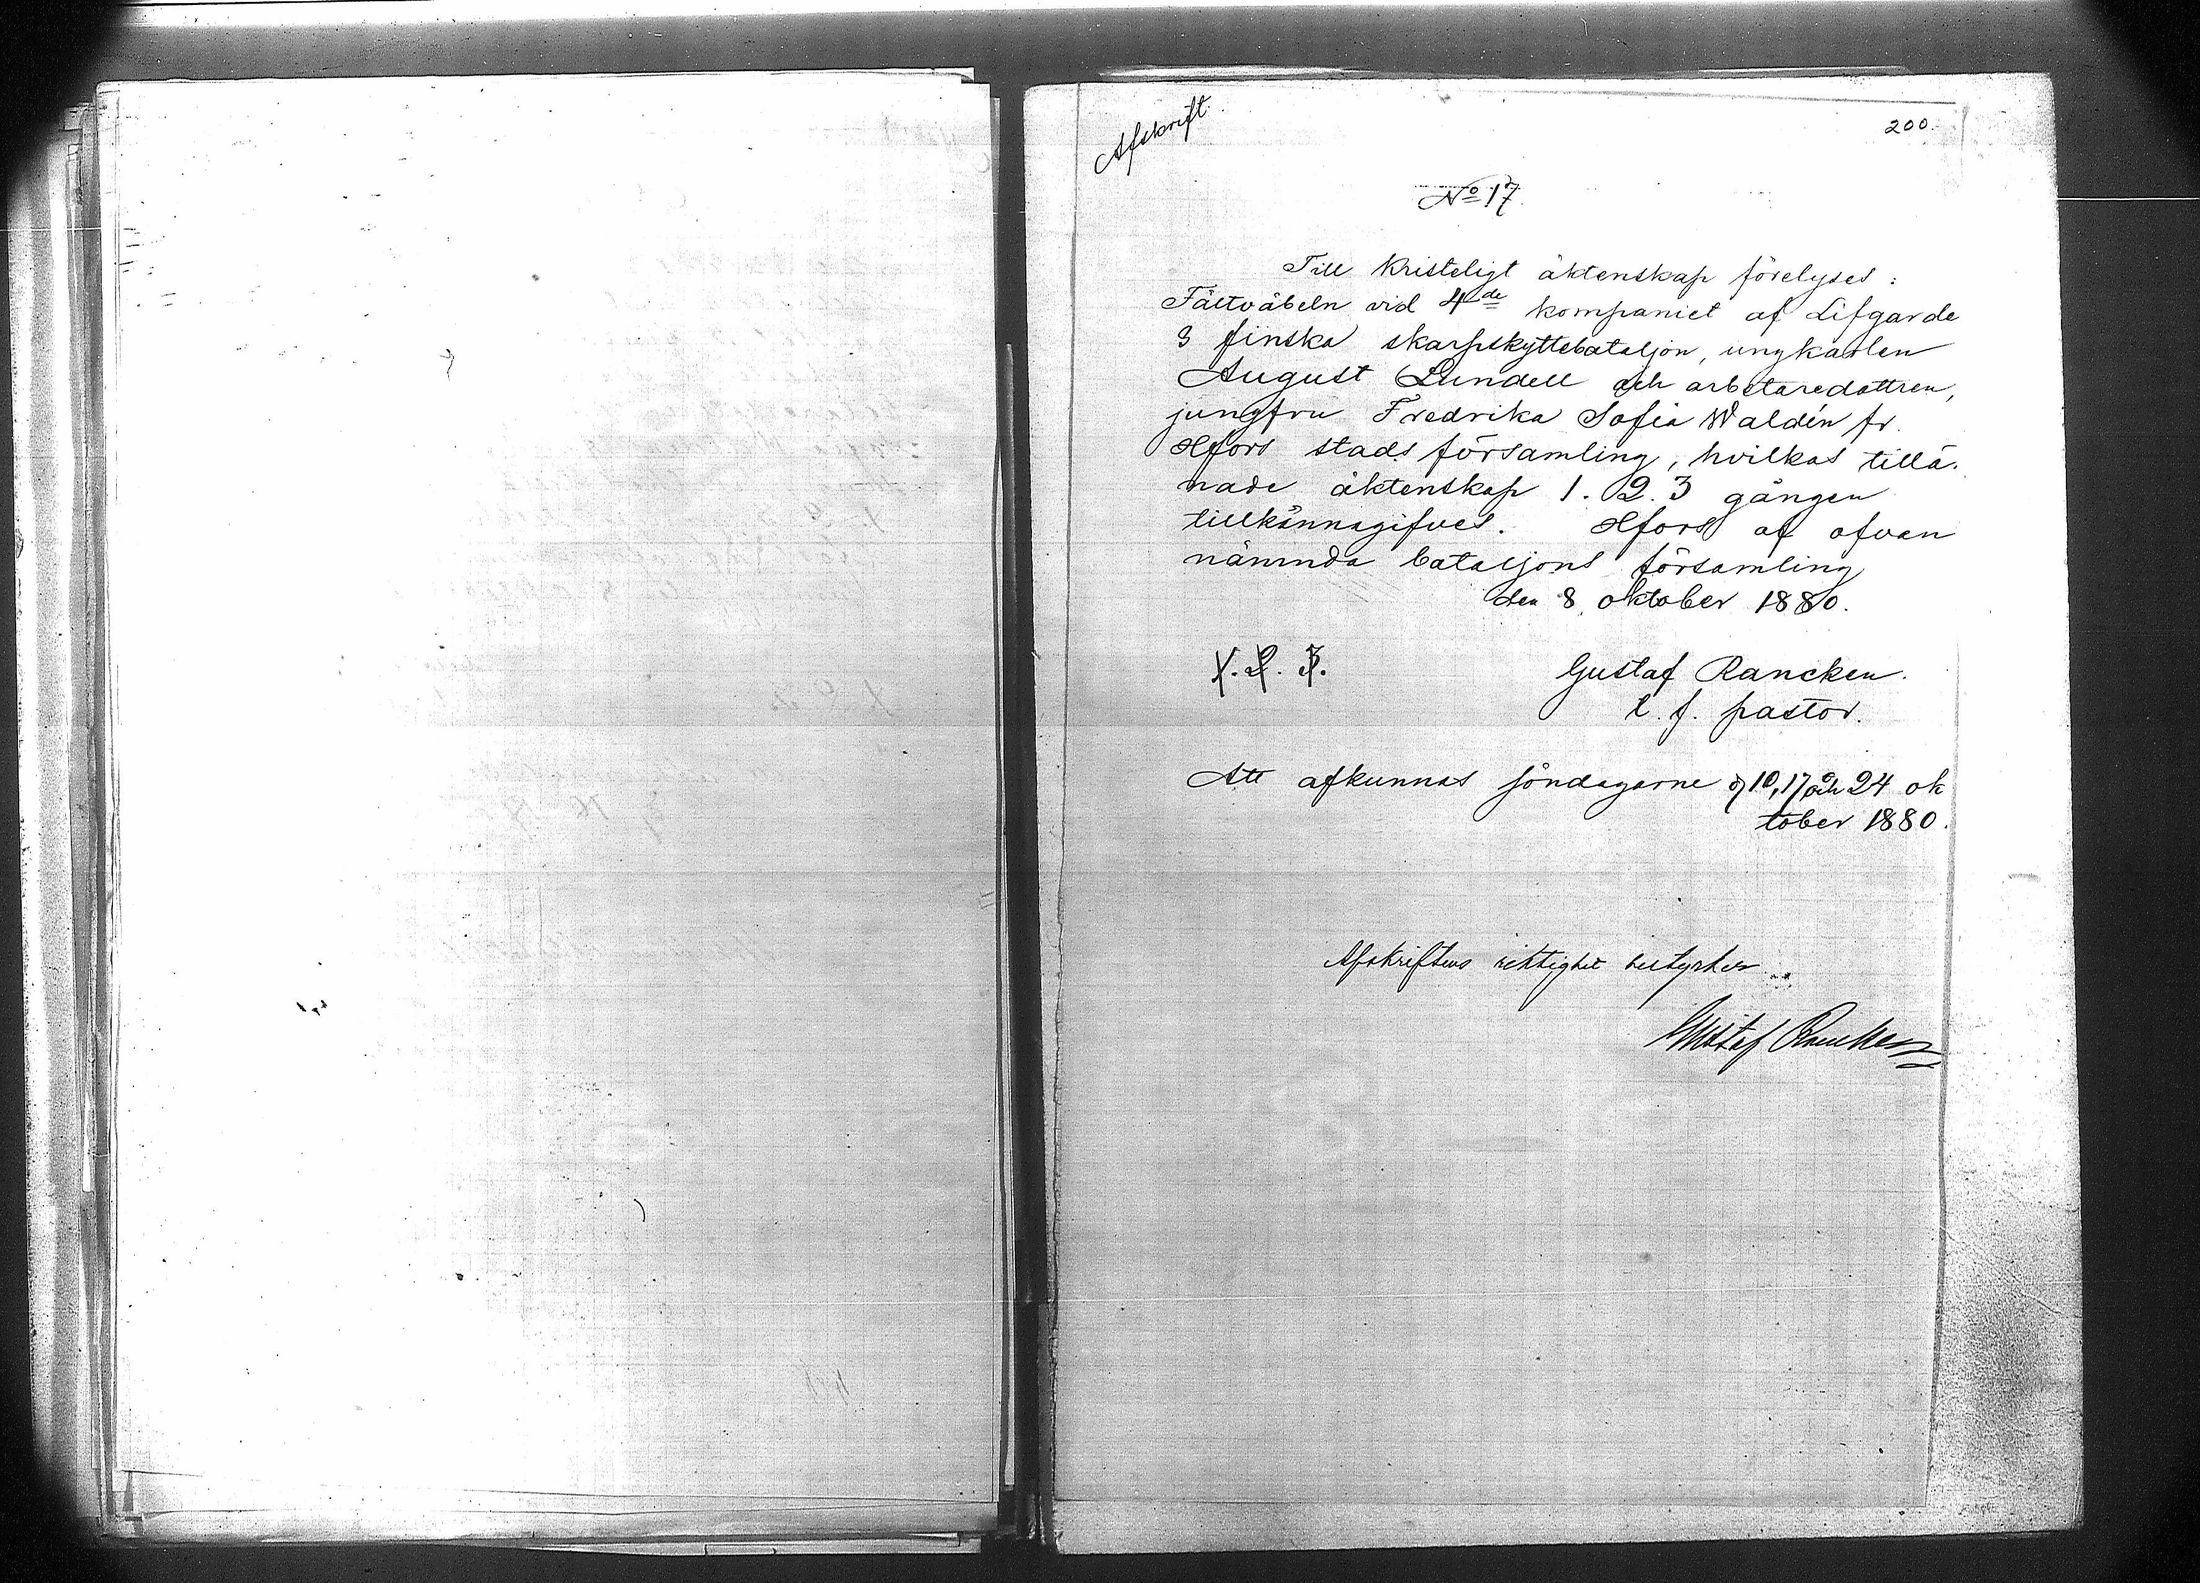 Afskrift.
200.
No 17.
Till kristeligt äktenskap förelyses:
Fältväbeln vid 4de kompaniet af Lifgarde
3 finska skarpskyttebataljon, ungkarlen
August Lundell och arbetaredottren,
jungfru Fredrika Sofia Waldén fr.
Hfors stads församling, hvilkas tillä-
nade äktenskap 1. 2. 3 gången
tillkännagifves. Hfors af ofvan
nämnda bataljons församling
den 8 oktober 1880.
1. 2. 3.
Gustaf Rancken.
t. f. pastor.
Att afkunnas söndagarne 10, 17 och 24 ok
tober 1880.
Afskriftens riktighet bestyrker
Gustaf Rancken